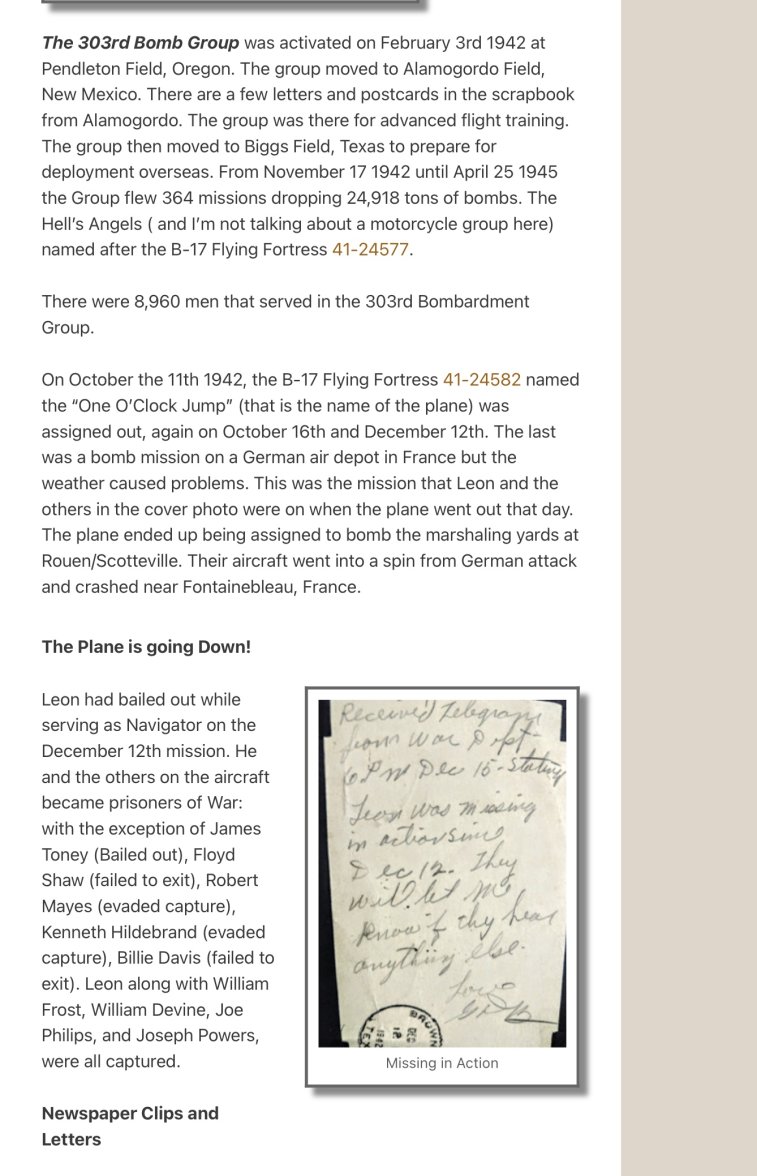 The 303rd Bomb Group was activated on February 3rd 1942 at
Pendleton Field, Oregon. The group moved to Alamogordo Field,
New Mexico. There are a few letters and postcards in the scrapbook
from Alamogordo. The group was there for advanced flight training.
The group then moved to Biggs Field, Texas to prepare for
deployment overseas. From November 17 1942 until April 25 1945
the Group flew 364 missions dropping 24,918 tons of bombs. The
Hell’s Angels ( and I’m not talking about a motorcycle group here)
named after the B-17 Flying Fortress 41-24577.
There were 8,960 men that served in the 303rd Bombardment
Group.
On October the 11th 1942, the B-17 Flying Fortress 41-24582 named
the “One O’Clock Jump” (that is the name of the plane) was
assigned out, again on October 16th and December 12th. The last
was a bomb mission on a German air depot in France but the
weather caused problems. This was the mission that Leon and the
others in the cover photo were on when the plane went out that day.
The plane ended up being assigned to bomb the marshaling yards at
Rouen/Scotteville. Their aircraft went into a spin from German attack
and crashed near Fontainebleau, France.
The Plane is going Down!
Leon had bailed out while
serving as Navigator on the
December 12th mission. He
and the others on the aircraft
became prisoners of War:
with the exception of James
Toney (Bailed out), Floyd
Shaw (failed to exit), Robert
Mayes (evaded capture),
Kenneth Hildebrand (evaded
capture), Billie Davis (failed to
exit). Leon along with William
Frost, William Devine, Joe
Philips, and Joseph Powers,
were all captured.
Received Telegram
from War Dept
6 PM Dec 15 - Stating
Leon was missing
in action since
Dec 12. They
will let me
know if they hear
anything else.
Love
BROWN
DEC
1942
TEX
Missing in Action
Newspaper Clips and
Letters